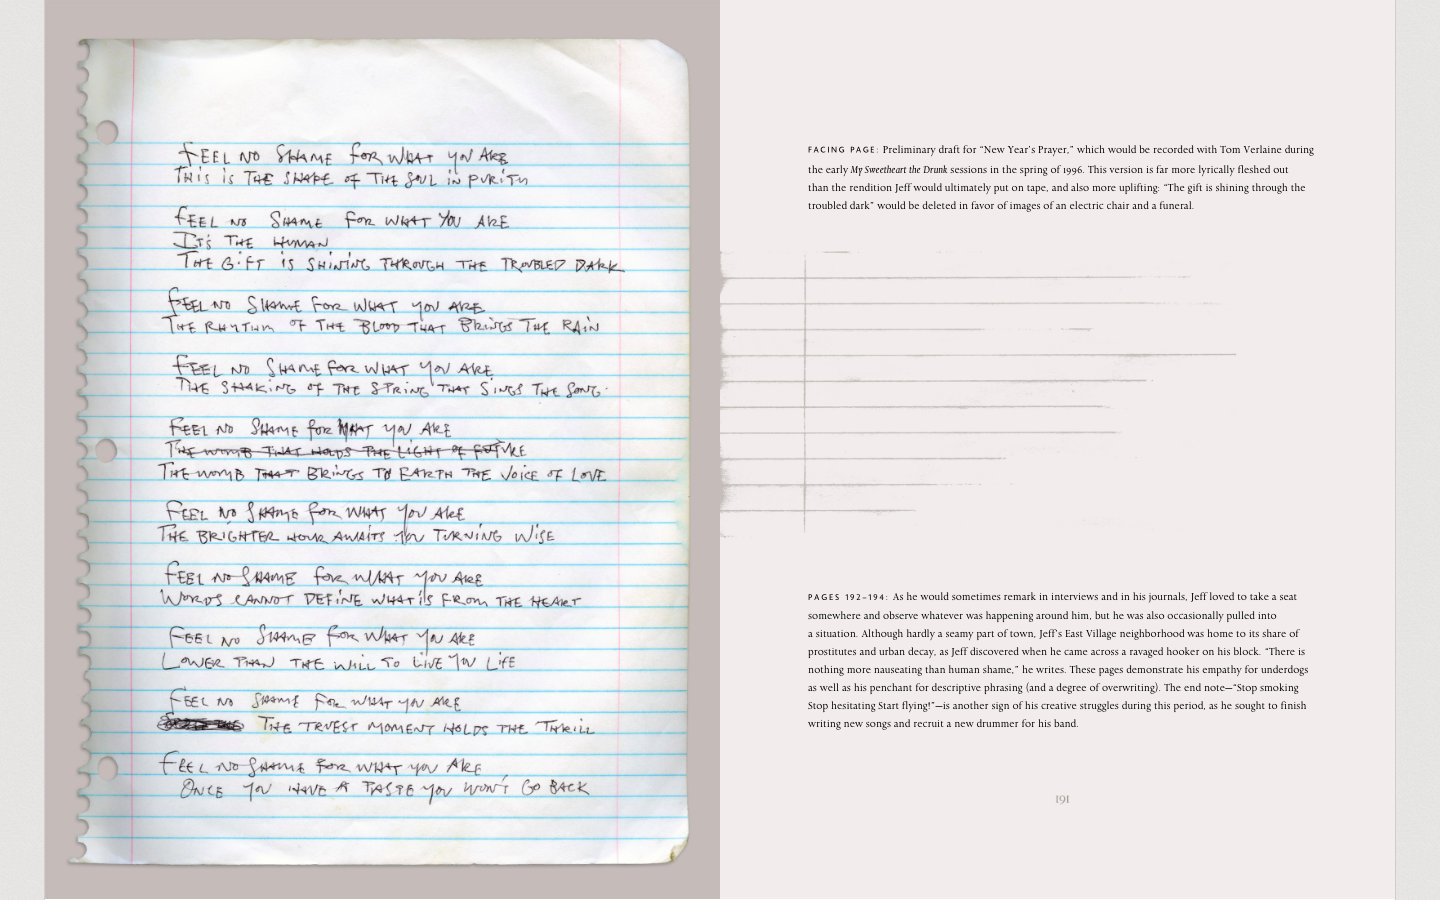 FEEL NO SHAME FOR WHAT YOU ARE
THIS IS THE SHAPE OF THE SOUL IN PURITY
FEEL NO SHAME FOR WHAT YOU ARE
IT'S THE HUMAN
THE GIFT IS SHINING THROUGH THE TROUBLED DARK
FEEL NO SHAME FOR WHAT YOU ARE
THE RHYTHM OF THE BLOOD THAT BRINGS THE RAIN
FEEL NO SHAME FOR WHAT YOU ARE
THE SHAKING OF THE STRING THAT SINGS THE SONG
FEEL NO SHAME FOR WHAT YOU ARE
THE WOMB THAT HOLDS THE LIGHT OF FUTURE
THE WOMB THAT BRINGS TO EARTH THE VOICE OF LOVE
FEEL NO SHAME FOR WHAT YOU ARE
THE BRIGHTER HOUR AWAITS YOU TURNING WISE
FEEL NO SHAME FOR WHAT YOU ARE
WORDS CANNOT DEFINE WHAT IS FROM THE HEART
FEEL NO SHAME FOR WHAT YOU ARE
LOWER THAN THE WILL TO LIVE YOU LIFE
FEEL NO SHAME FOR WHAT YOU ARE
THE TRUEST MOMENT HOLDS THE THRILL
FEEL NO SHAME FOR WHAT YOU ARE
ONCE YOU HAVE A TASTE YOU WON'T GO BACK
FACING PAGE: Preliminary draft for “New Year's Prayer,” which would be recorded with Tom Verlaine during
the early My Sweetheart the Drunk sessions in the spring of 1996. This version is far more lyrically fleshed out
than the rendition Jeff would ultimately put on tape, and also more uplifting: “The gift is shining through the
troubled dark” would be deleted in favor of images of an electric chair and a funeral.
PAGES 192–194: As he would sometimes remark in interviews and in his journals, Jeff loved to take a seat
somewhere and observe whatever was happening around him, but he was also occasionally pulled into
a situation. Although hardly a seamy part of town, Jeff's East Village neighborhood was home to its share of
prostitutes and urban decay, as Jeff discovered when he came across a ravaged hooker on his block. “There is
nothing more nauseating than human shame,” he writes. These pages demonstrate his empathy for underdogs
as well as his penchant for descriptive phrasing (and a degree of overwriting). The end note—“Stop smoking
Stop hesitating Start flying!”—is another sign of his creative struggles during this period, as he sought to finish
writing new songs and recruit a new drummer for his band.
191